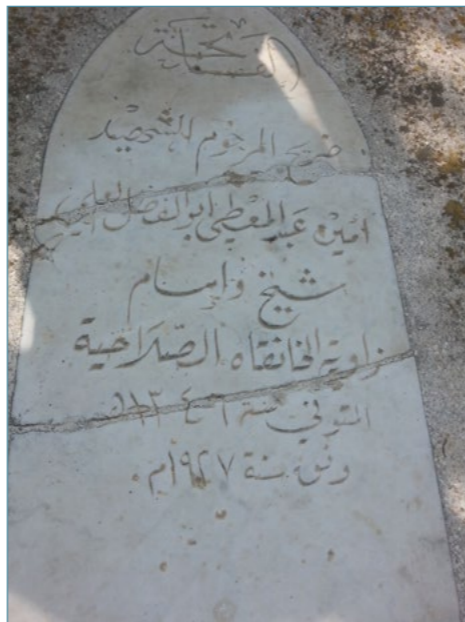 الفاتحة
ضريح المرحوم الشهيد
عبد المعطي ابو الفضل العلمي
شيخ وامام
زاوية الخانقاه الصلاحية
المتوفي سنة
وفق سنة ١٩٢٧م